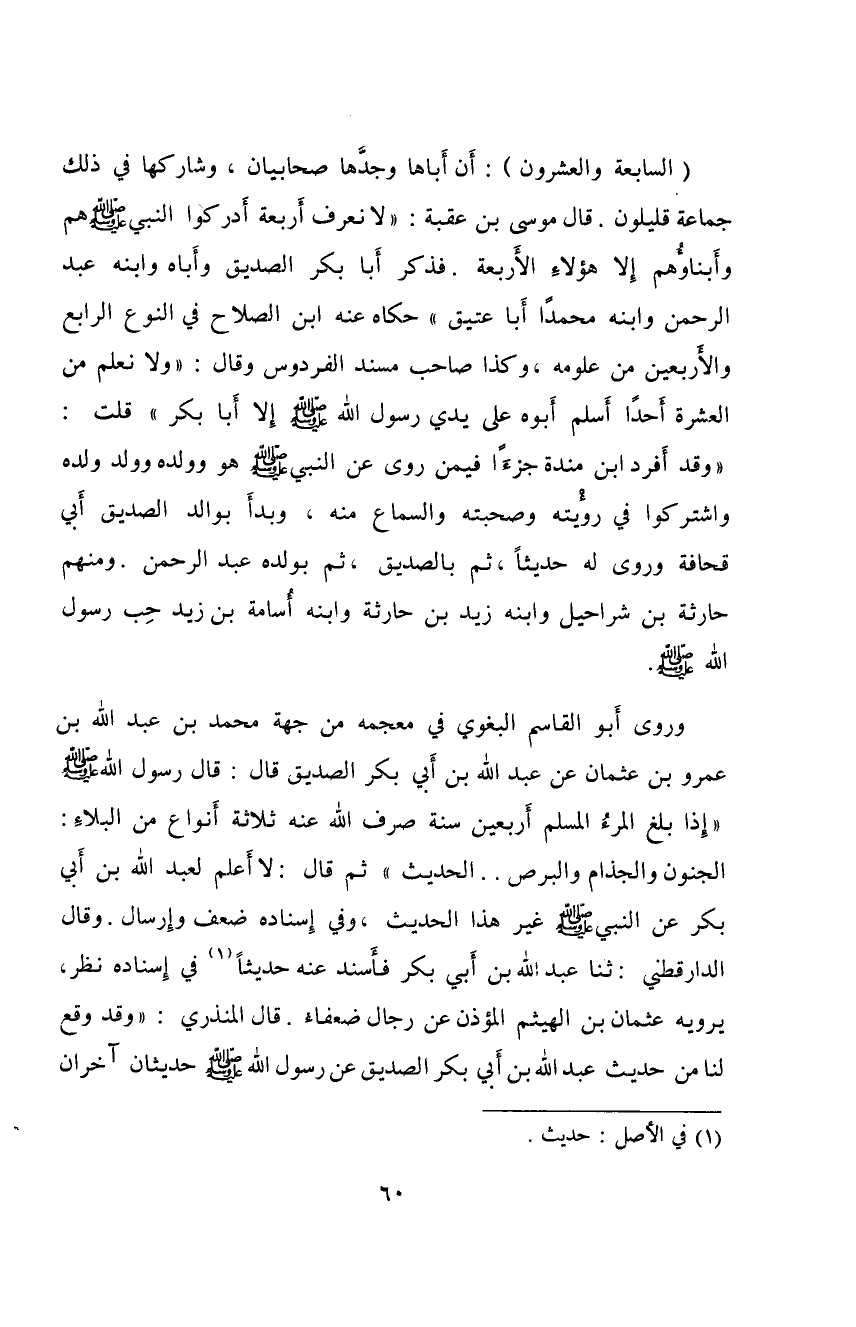 ( السابعة والعشرون ) : أَن أَباها وجدَّها صحابيان ، وشاركها في ذلك
جماعة قليلون . قال موسى بن عقبة : « لا نعرف أَربعة أَدركوا النبي ﷺ هم
وأَبناؤُهم إِلا هؤلاءِ الأَربعة . فذكر أَبا بكر الصديق وأَباه وابنه عبد
الرحمن وابنه محمدًا أَبا عتيق » حكاه عنه ابن الصلاح في النوع الرابع
والأَربعين من علومه ، وكذا صاحب مسند الفردوس وقال : « ولا نعلم من
العشرة أَحدًا أَسلم أَبوه على يدي رسول الله ﷺ إِلا أَبا بكر » قلت :
« وقد أَفرد ابن مندة جزءًا فيمن روى عن النبي ﷺ هو وولده وولد ولده
واشتركوا في رؤْيته وصحبته والسماع منه ، وبدأَ بوالد الصديق أَبي
قحافة وروى له حديثاً ، ثم بالصديق ، ثم بولده عبد الرحمن . ومنهم
حارثة بن شراحيل وابنه زيد بن حارثة وابنه أُسامة بن زيد حِب رسول
الله ﷺ .
وروى أَبو القاسم البغوي في معجمه من جهة محمد بن عبد الله بن
عمرو بن عثمان عن عبد الله بن أَبي بكر الصديق قال : قال رسول الله ﷺ
« إِذا بلغ المرءُ المسلم أَربعين سنة صرف الله عنه ثلاثة أَنواع من البلاءِ :
الجنون والجذام والبرص . . الحديث » ثم قال : لا أَعلم لعبد الله بن أَبي
بكر عن النبي ﷺ غير هذا الحديث ، وفي إِسناده ضعف وإِرسال . وقال
الدارقطني : ثنا عبد الله بن أَبي بكر فأَسند عنه حديثاً (١) في إِسناده نظر ،
يرويه عثمان بن الهيثم المؤذن عن رجال ضعفاءَ . قال المنذري : « وقد وقع
لنا من حديث عبد الله بن أَبي بكر الصديق عن رسول الله ﷺ حديثان آخران
(١) في الأصل : حديث .
٦٠